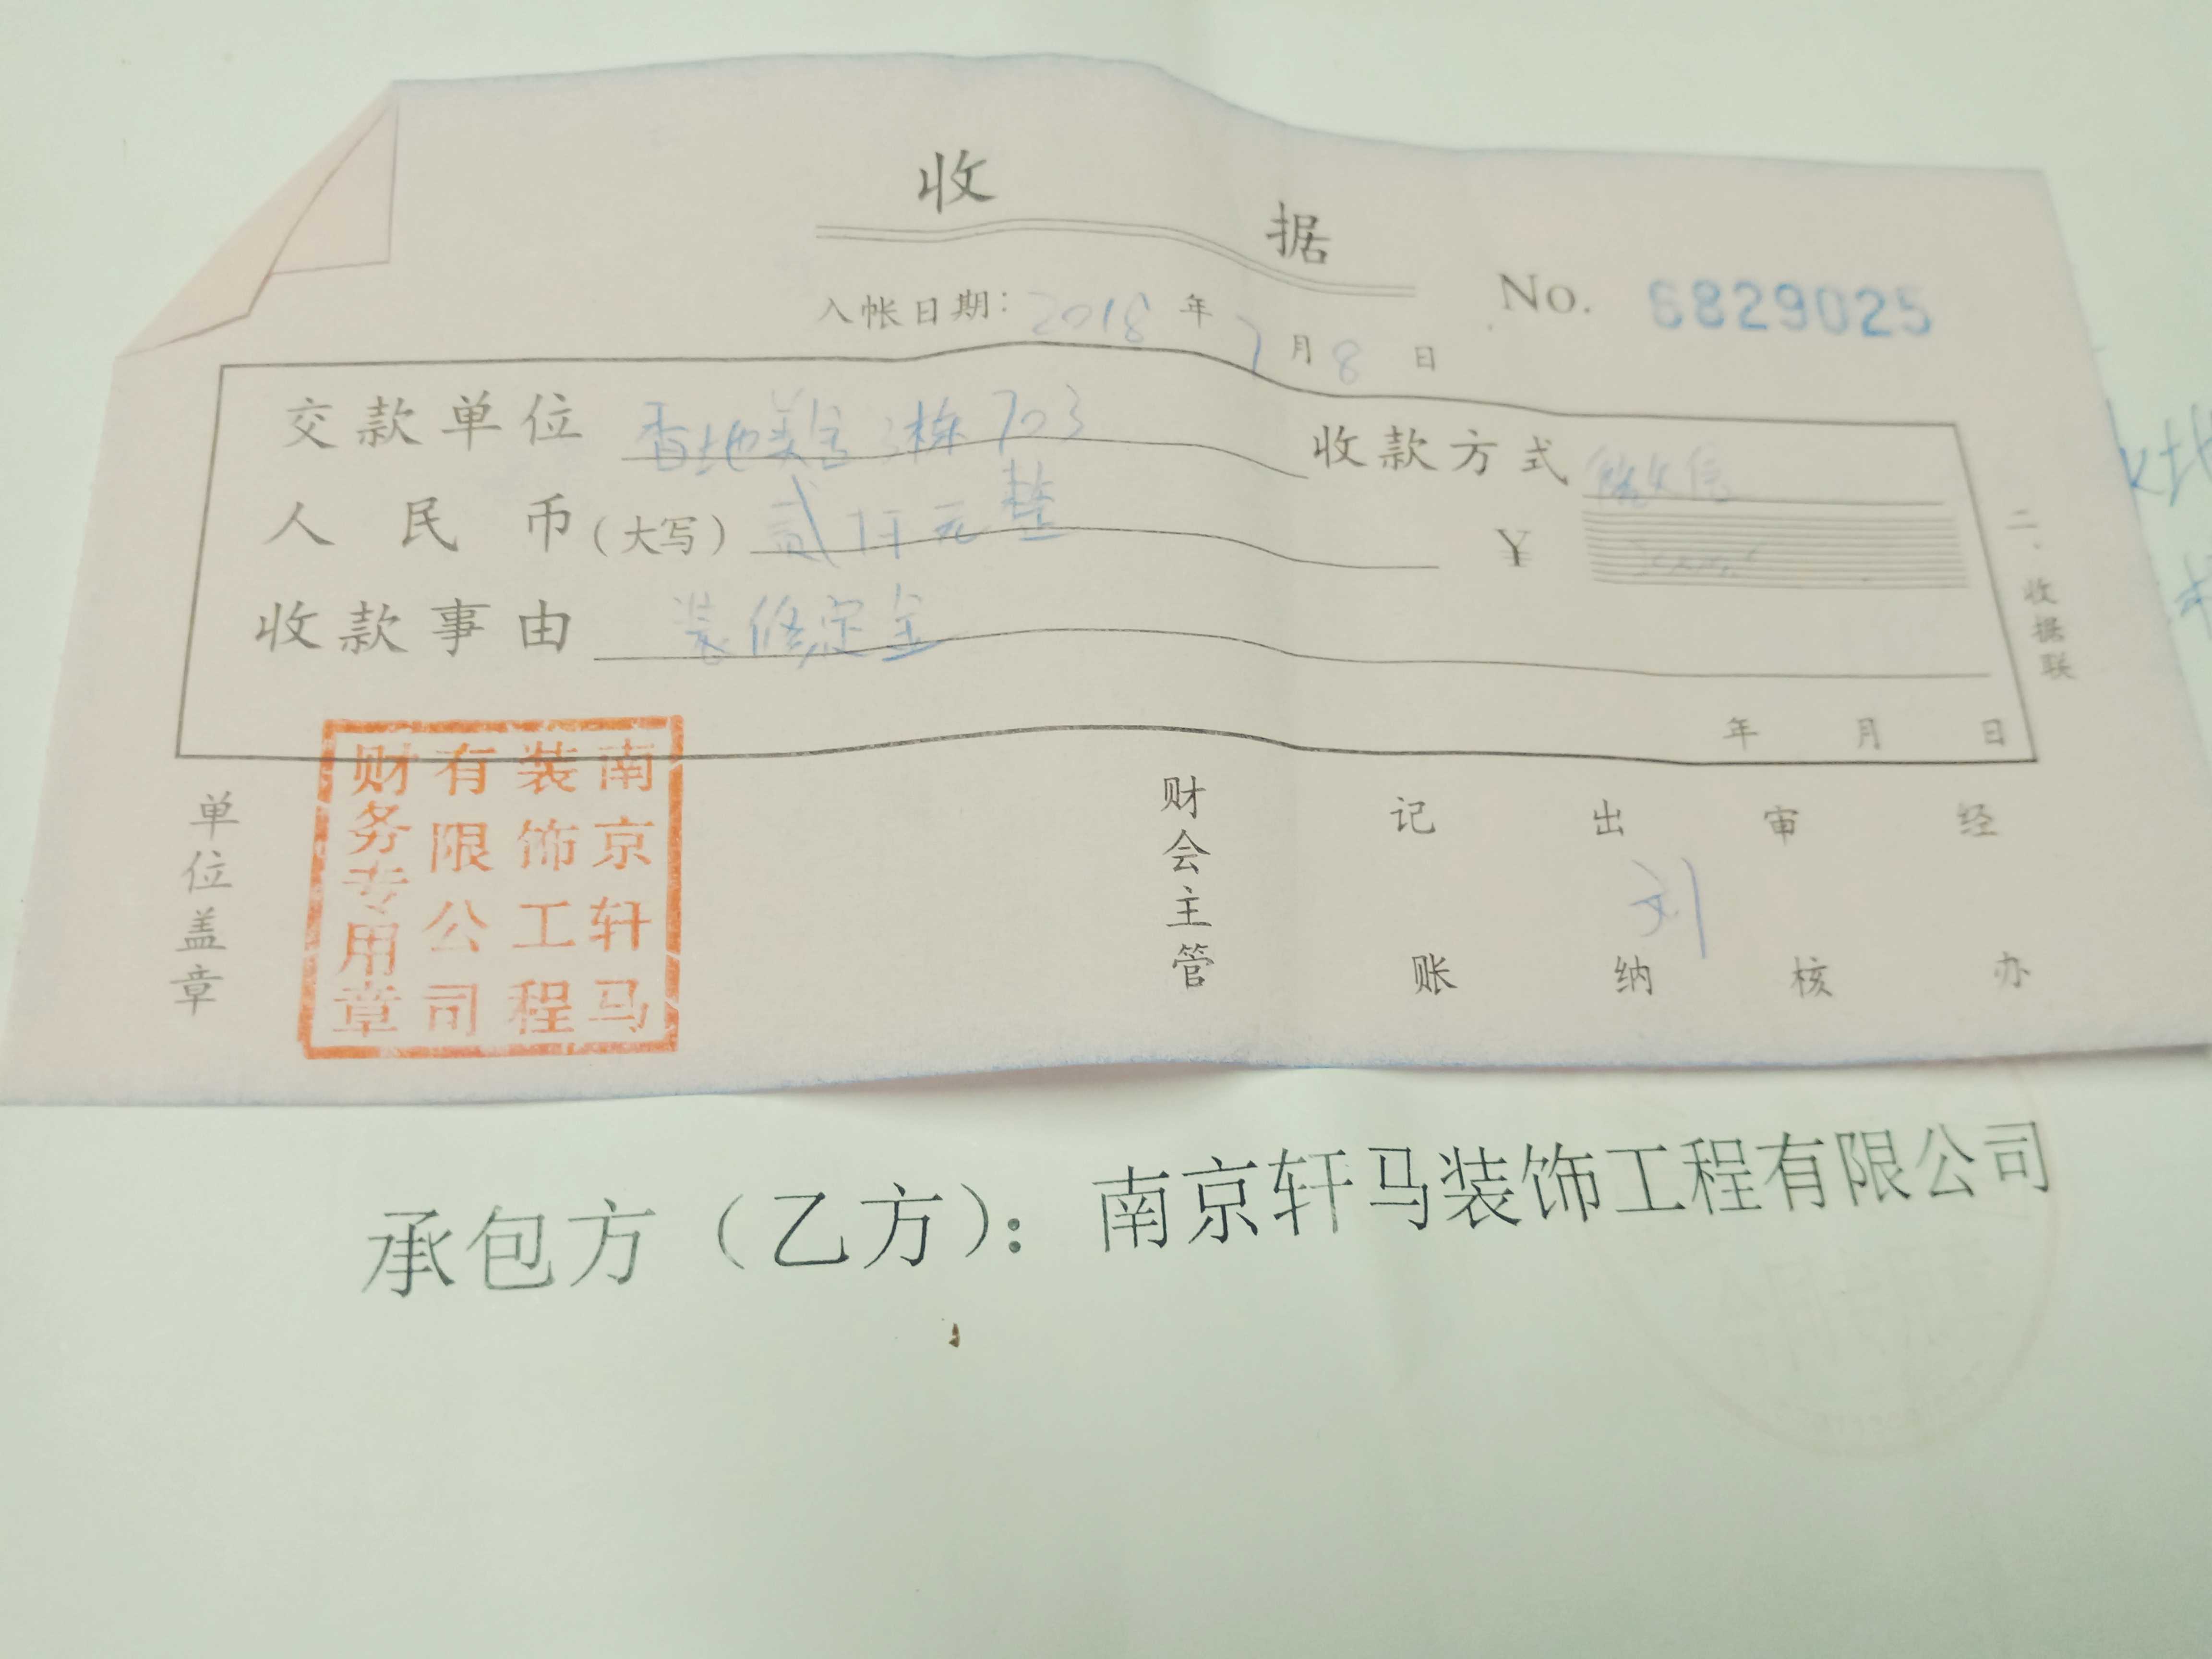 收据
入帐日期：2018年7月8日
No. 6829025
交款单位 香地美舍3栋703
收款方式 微信
人民币（大写）贰仟元整 ¥
收款事由 装修定金
年 月 日
二、收据联
单位盖章
南京轩马
装饰工程
有限公司
财务专用章
财会主管 记账 出纳 刘 审核 经办
承包方（乙方）：南京轩马装饰工程有限公司